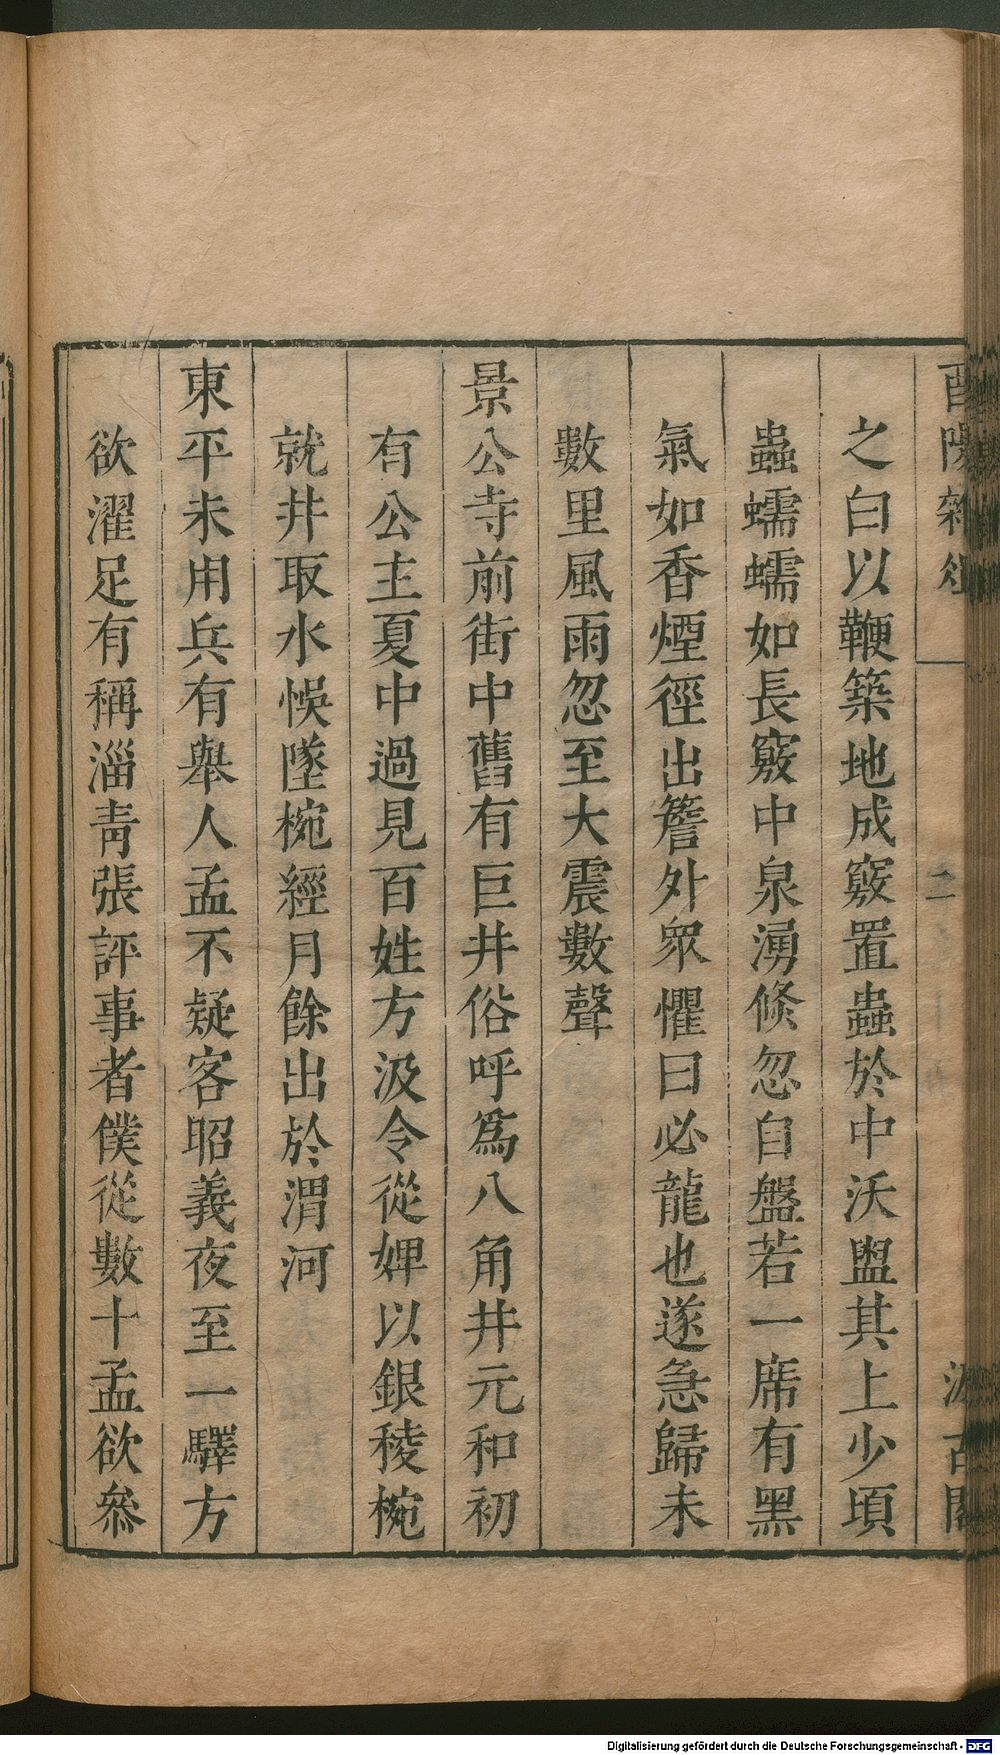 酉陽雜俎
二
汲古閣
之白以鞭築地成竅置蟲於中沃盥其上少頃
蟲蠕蠕如長竅中泉湧倐忽自盤若一席有黑
氣如香煙徑出簷外眾懼曰必龍也遂急歸未
數里風雨忽至大震數聲
景公寺前街中舊有巨井俗呼為八角井元和初
有公主夏中過見百姓方汲令從婢以銀稜椀
就井取水悞墜椀經月餘出於渭河
東平未用兵有舉人孟不疑客昭義夜至一驛方
欲濯足有稱淄青張評事者僕從數十孟欲叅
Digitalisierung gefördert durch die Deutsche Forschungsgemeinschaft - DFG